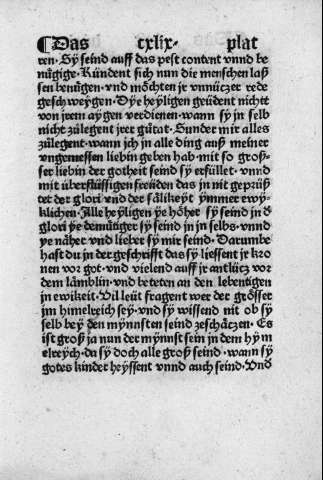 ¶Das cxlix· plat
ren· Sy seind auff das pest content vnnd be
nügige· Kündent sich nun die menschen lasſ
sen benügen· vnd möchten jr vnnüczer rede
geschweygen· Dye heyligen geüdent nichtt
von jrem aygen verdienen· wann sy jn selb
nicht zůlegent jrer gůtat· Sunder mir alles
zůlegent· wann jch jn alle ding auß meiner
vngemessen liebin geben hab· mit so groſ
ser liebin der gotheit seind sy erfüllet· vnnd
mit überflüssigen freüden das in nit geprüſ
tet der glori vnd der sälikeyt ymmer ewy
klichen· Alle heyligen ye höher sy seind jn d̕
glori ye demütiger sy seind in jn selbs· vnnd
ye näher vnd lieber sy mir seind· Darumbe
hast du in der geschrifft das sy liessent jr kro
nen vor got· vnd vielend auff jr antlücz vor
dem lämblin· vnd beteten an den lebentigen
jn ewikeit· Vil leüt fragent wer der grösser
jm himelreich sey· vnd sy wissend nit ob sy
selb bey den mynnsten seind zeschäczen· Es
ist groß ja nun der mynnst sein jn dem hym
elreych· da sy doch alle groß seind· wann sy
gotes kinder heyssent vnnd auch seind· Vnd